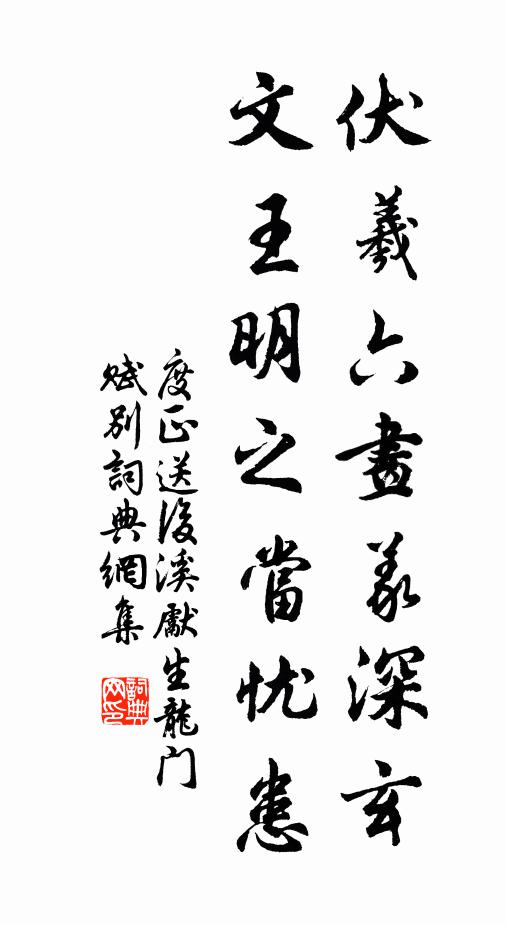 伏羲六畫義深玄
文王明之當忧患
度正送後溪獻生龍门
赋别詞典網集
詞典网印